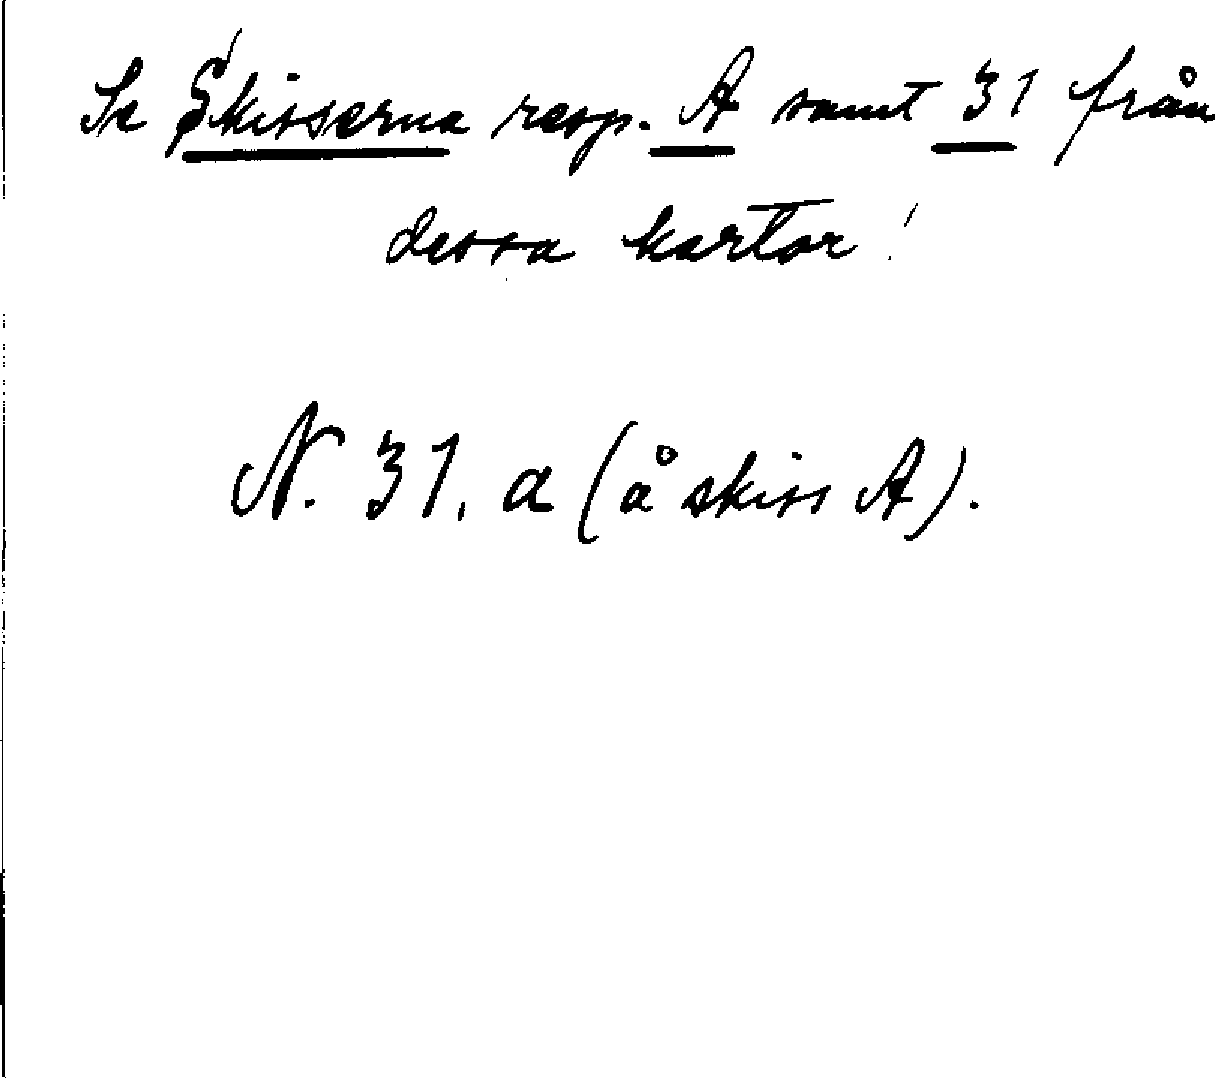 Se Skisserna resp. A samt 31 från
dessa kartor!
N. 31. a (å skiss A).